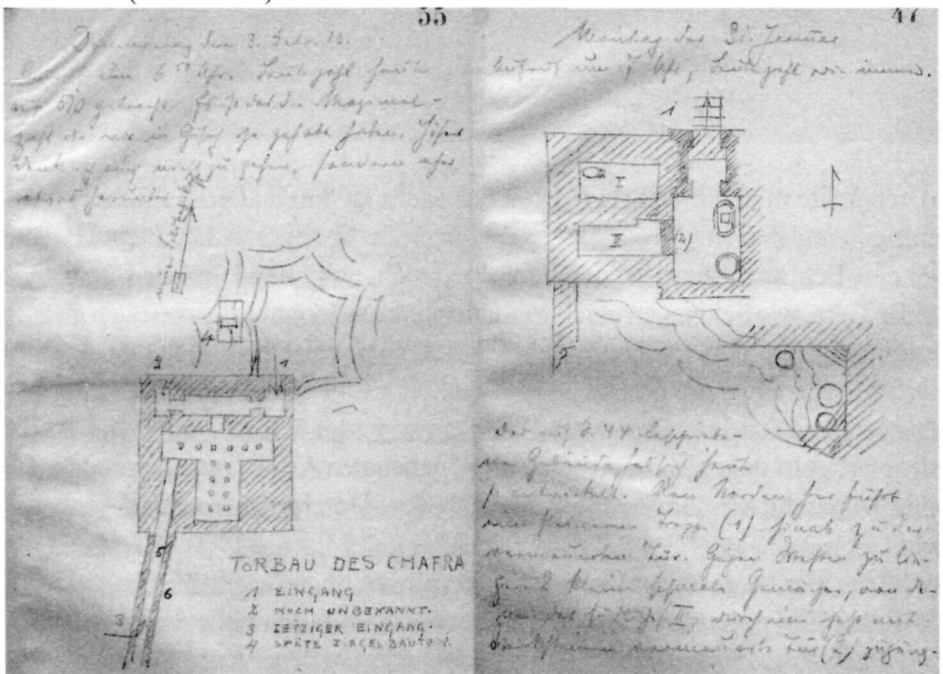 55
den 3. Febr. 10.
um 6 50 Uhr. Leutezahl heute
auf 570 gebracht. Es ist das die Maximal-
zahl die wir in Giseh je gehabt haben. Höher
auch nicht zu gehen, sondern eher
etwas herunter
2
4
1
5
6
3
TORBAU DES CHAFRA
1 EINGANG
2 NOCH UNBEKANNT.
3 JETZIGER EINGANG.
4 SPÄTE ZIEGELBAUTEN.
47
Montag den 31. Januar
um 7 Uhr, Leutezahl wie immer.
1
I
II
(2)
Der auf S. 44 beschriebe-
ne Gebäude hat sich heute
entwickelt. Von Norden her führt
eine Treppe (1) hinab zu der
vermauerten Tür. Gegen Westen zu lie-
gen 2 kleine schmale Gemächer, von de-
nen das südl. II, durch eine jetzt mit
vermauerte Tür (2) zugäng-